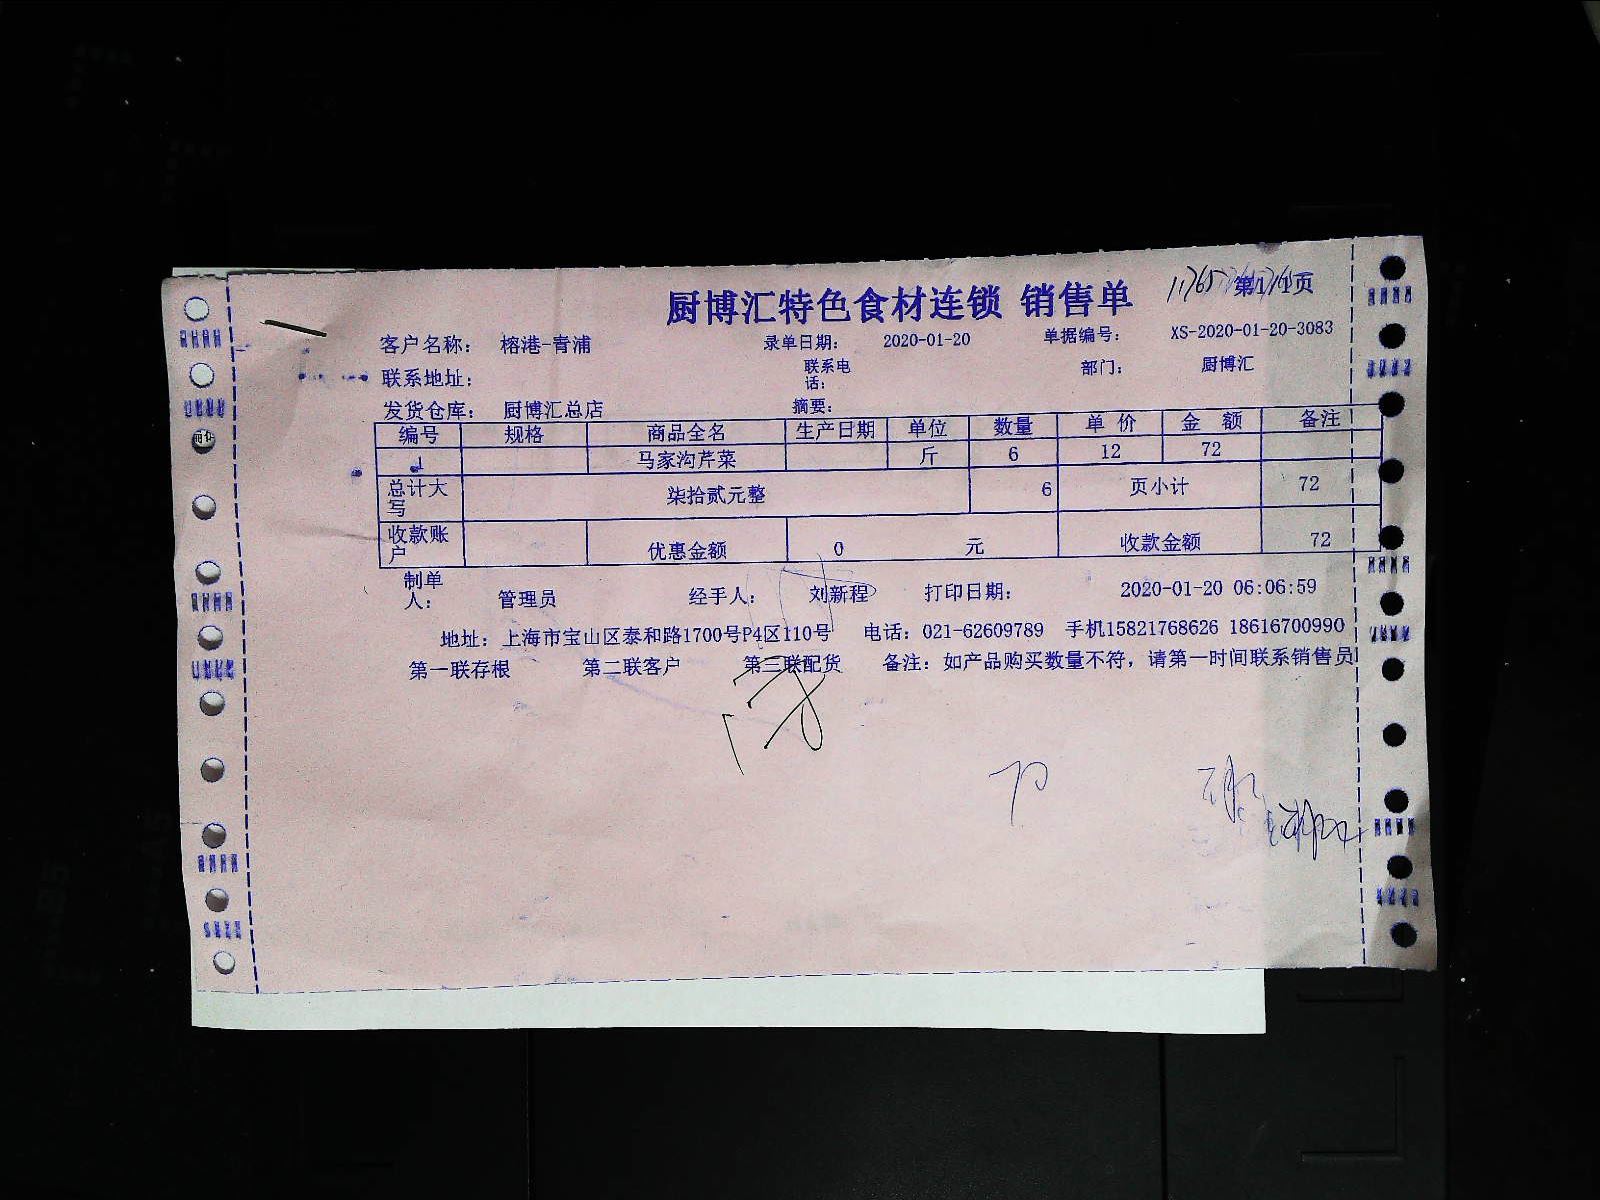 厨博汇特色食材连锁 销售单 第1/1页
客户名称： 榕港-青浦 录单日期： 2020-01-20 单据编号： XS-2020-01-20-3083
联系地址： 联系电话： 部门： 厨博汇
发货仓库： 厨博汇总店 摘要：
编号 规格 商品全名 生产日期 单位 数量 单 价 金 额 备注
1 马家沟芹菜 斤 6 12 72
总计大写 柒拾贰元整 6 页小计 72
收款账户 优惠金额 0 元 收款金额 72
制单人： 管理员 经手人： 刘新程 打印日期： 2020-01-20 06:06:59
地址：上海市宝山区泰和路1700号P4区110号 电话：021-62609789 手机15821768626 18616700990
第一联存根 第二联客户 第三联配货 备注：如产品购买数量不符，请第一时间联系销售员